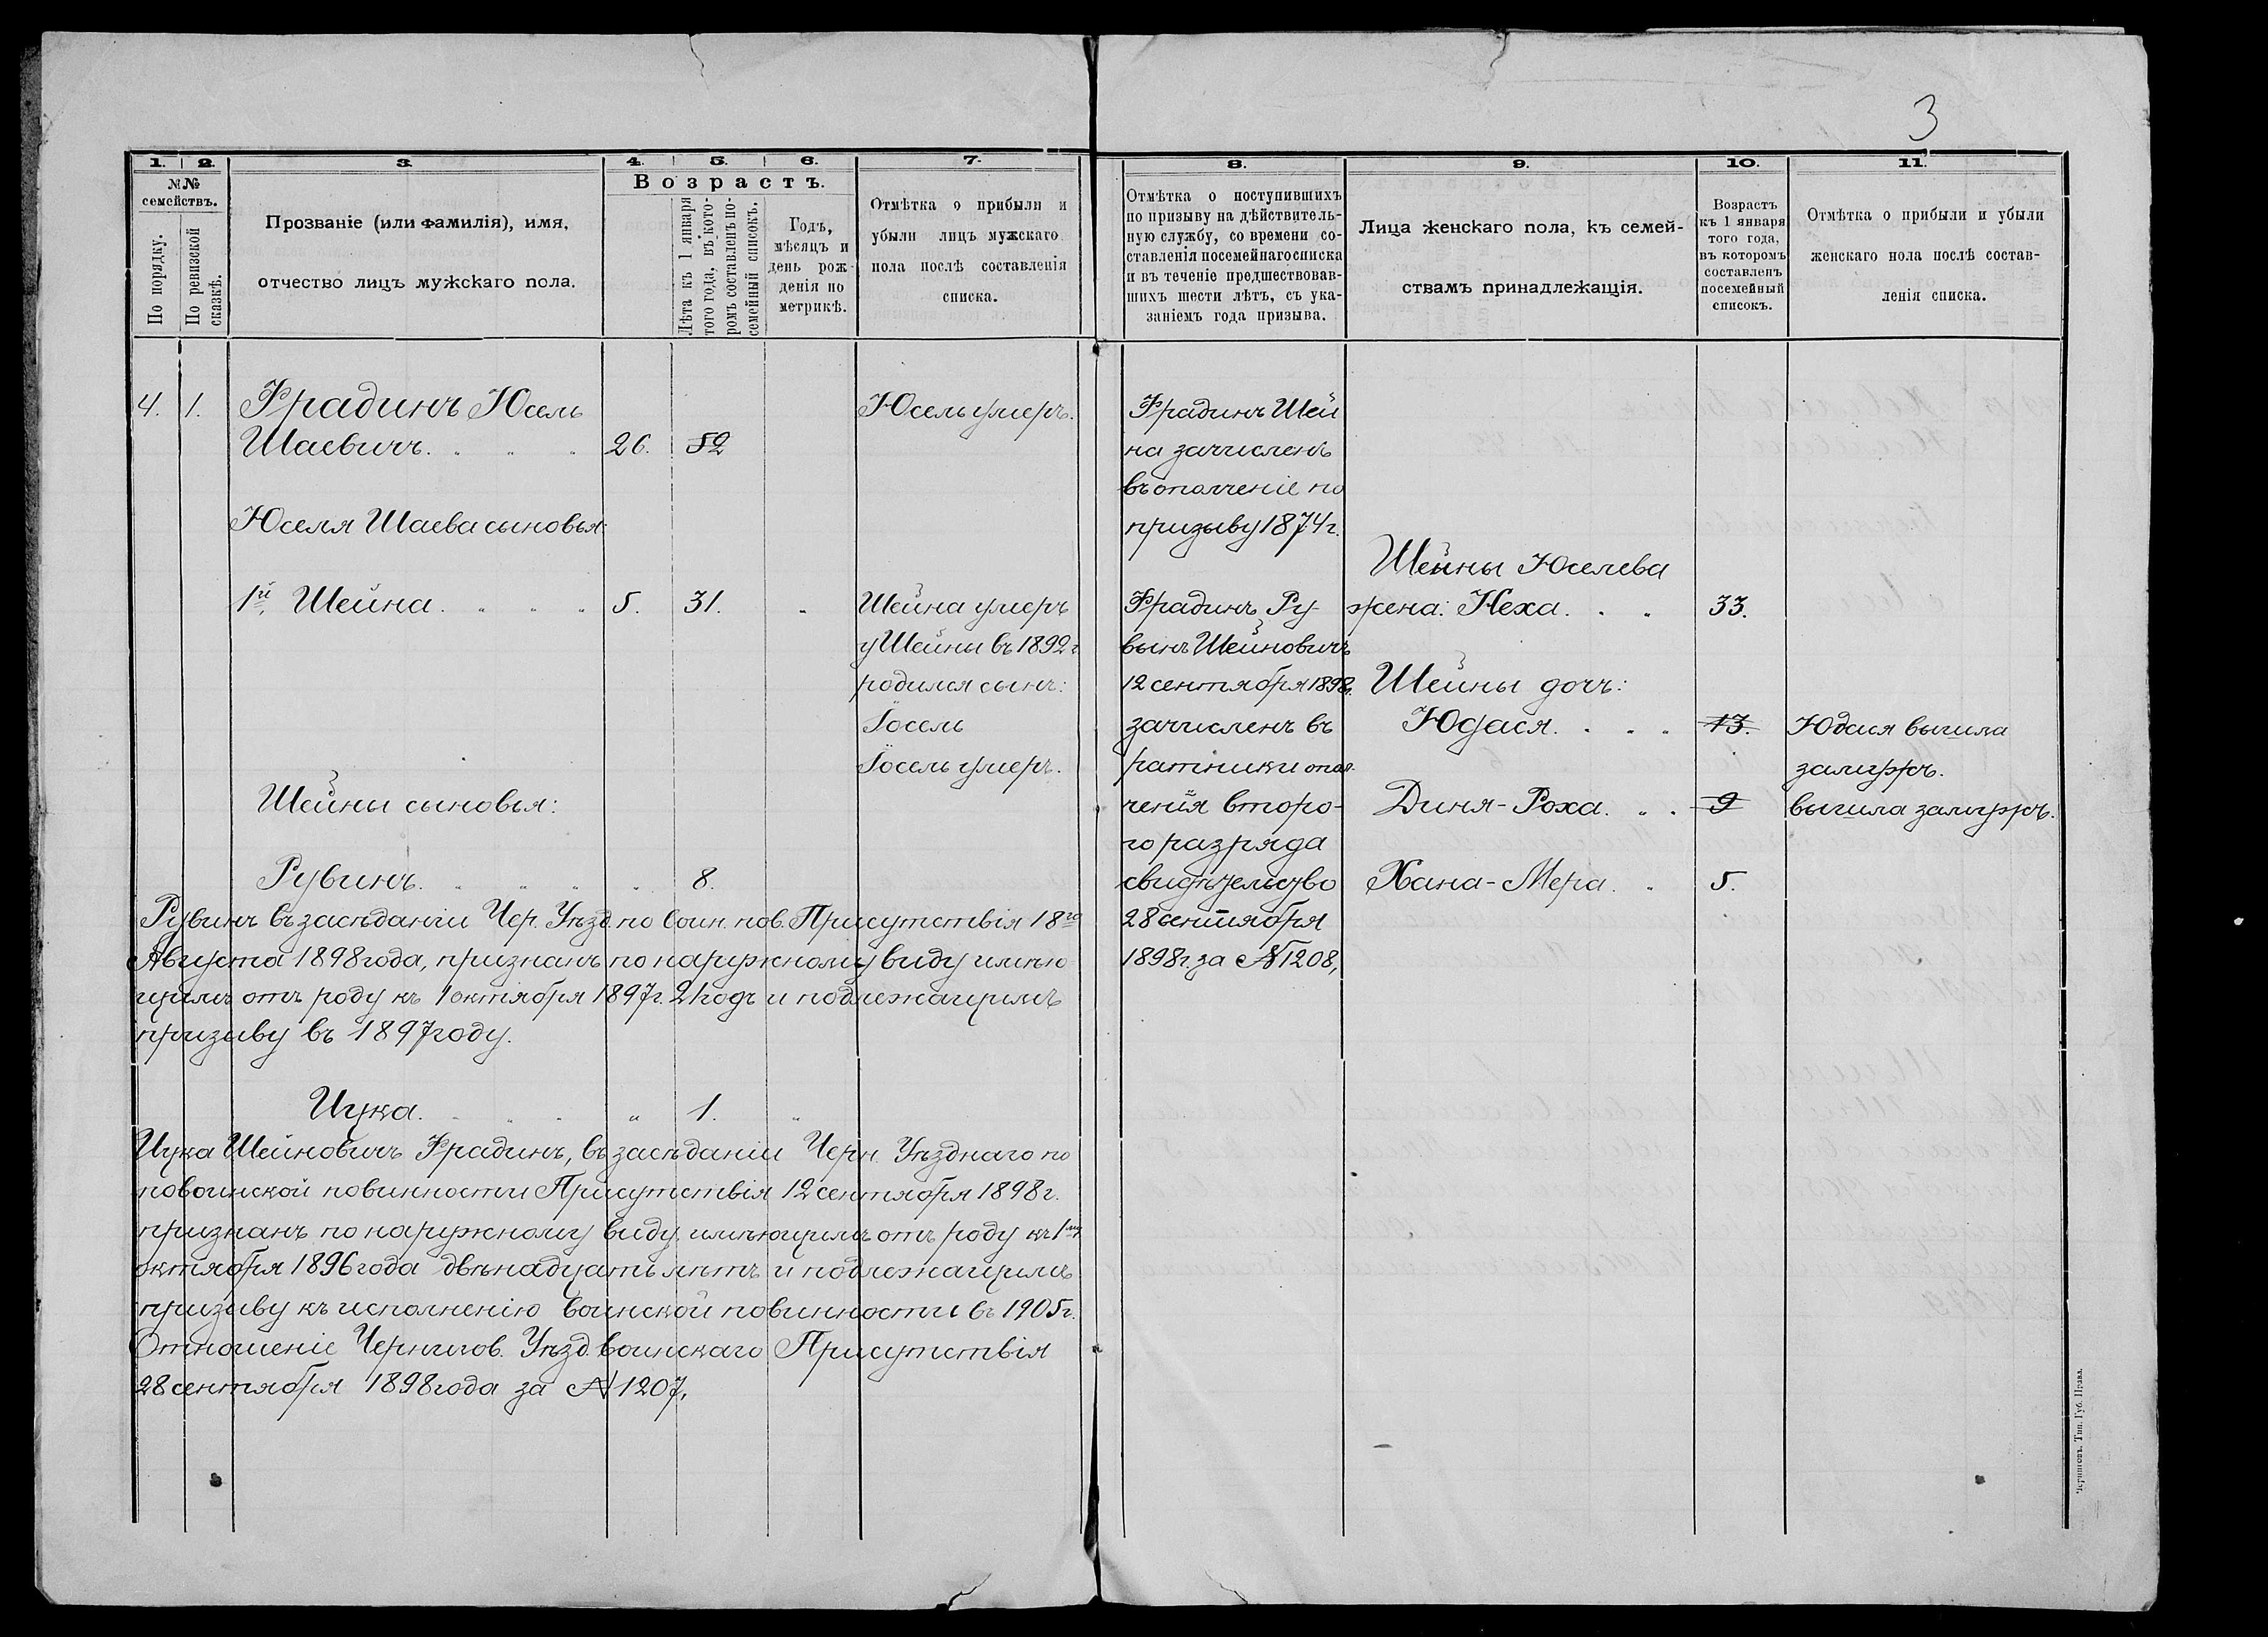 3
1. 2. 3. 4. 5. 6. 7.
№№ семействъ.
По порядку.
По ревизской сказкѣ.
Прозваніе (или фамилія), имя,
отчество лицъ мужскаго пола.
Возрастъ.
Лѣта къ 1 января
того года, въ кото-
ромъ составленъ по-
семейный списокъ.
Годъ,
мѣсяцъ и
день рож-
денія по
метрикѣ.
Отмѣтка о прибыли и
убыли лицъ мужскаго
пола послѣ составленія
списка.
4. 1. Фрадинъ Юсель
Шаевичъ. 26. 52
Юсель умеръ.
Юселя Шаева сыновья:
1й, Шейна. 5. 31.
Шейна умеръ
у Шейны въ 1892 г
родился сынъ:
Іосель
Іосель умеръ.
Шейны сыновья:
Рувинъ. 8.
Рувинъ въ засѣданіи Чер. Уѣзд. по воин. пов. Присутствія 18го
Августа 1898 года, признанъ по наружному виду имѣю-
щимъ отъ роду къ 1 октября 1897 г. 21 годъ и подлежащимъ
призыву въ 1897 году.
Ицка. 1.
Ицка Шейновичъ Фрадинъ, въ засѣданіи Черн. Уѣзднаго по
повоинской повинности Присутствія 12 сентября 1898 г.
признанъ по наружному виду имѣющимъ отъ роду къ 1му
октября 1896 года двѣнадцать лѣтъ и подлежащимъ
призыву къ исполненію воинской повинности въ 1905 г.
Отношеніе Чернигов. Уѣзд. воинскаго Присутствія
28 сентября 1898 года за № 1207,
8. 9. 10. 11.
Отмѣтка о поступившихъ
по призыву на дѣйствитель-
ную службу, со времени со-
ставленія посемейнаго списка
и въ теченіе предшествовав-
шихъ шести лѣтъ, съ ука-
заніемъ года призыва.
Лица женскаго пола, къ семей-
ствамъ принадлежащія.
Возрастъ
къ 1 января
того года,
въ которомъ
составленъ
посемейный
списокъ.
Отмѣтка о прибыли и убыли
женскаго пола послѣ состав-
ленія списка.
Фрадинъ Шей
на зачисленъ
въ ополченіе по
призыву 1874 г.
Фрадинъ Ру-
вынъ Шейновичъ
12 сентября 1898 г.
зачисленъ въ
ратники опол-
ченія второ-
го разряда
свидѣтельство
28 сентября
1898 г. за № 1208,
Шейны Юселева
жена: Неха. 33.
Шейны дочь:
Юдася. 13. Юдася вышла
замужъ.
Диня-Роха. 9 вышла замужъ.
Хана-Мера. 5.
Черниговъ. Тип. Губ. Прав.